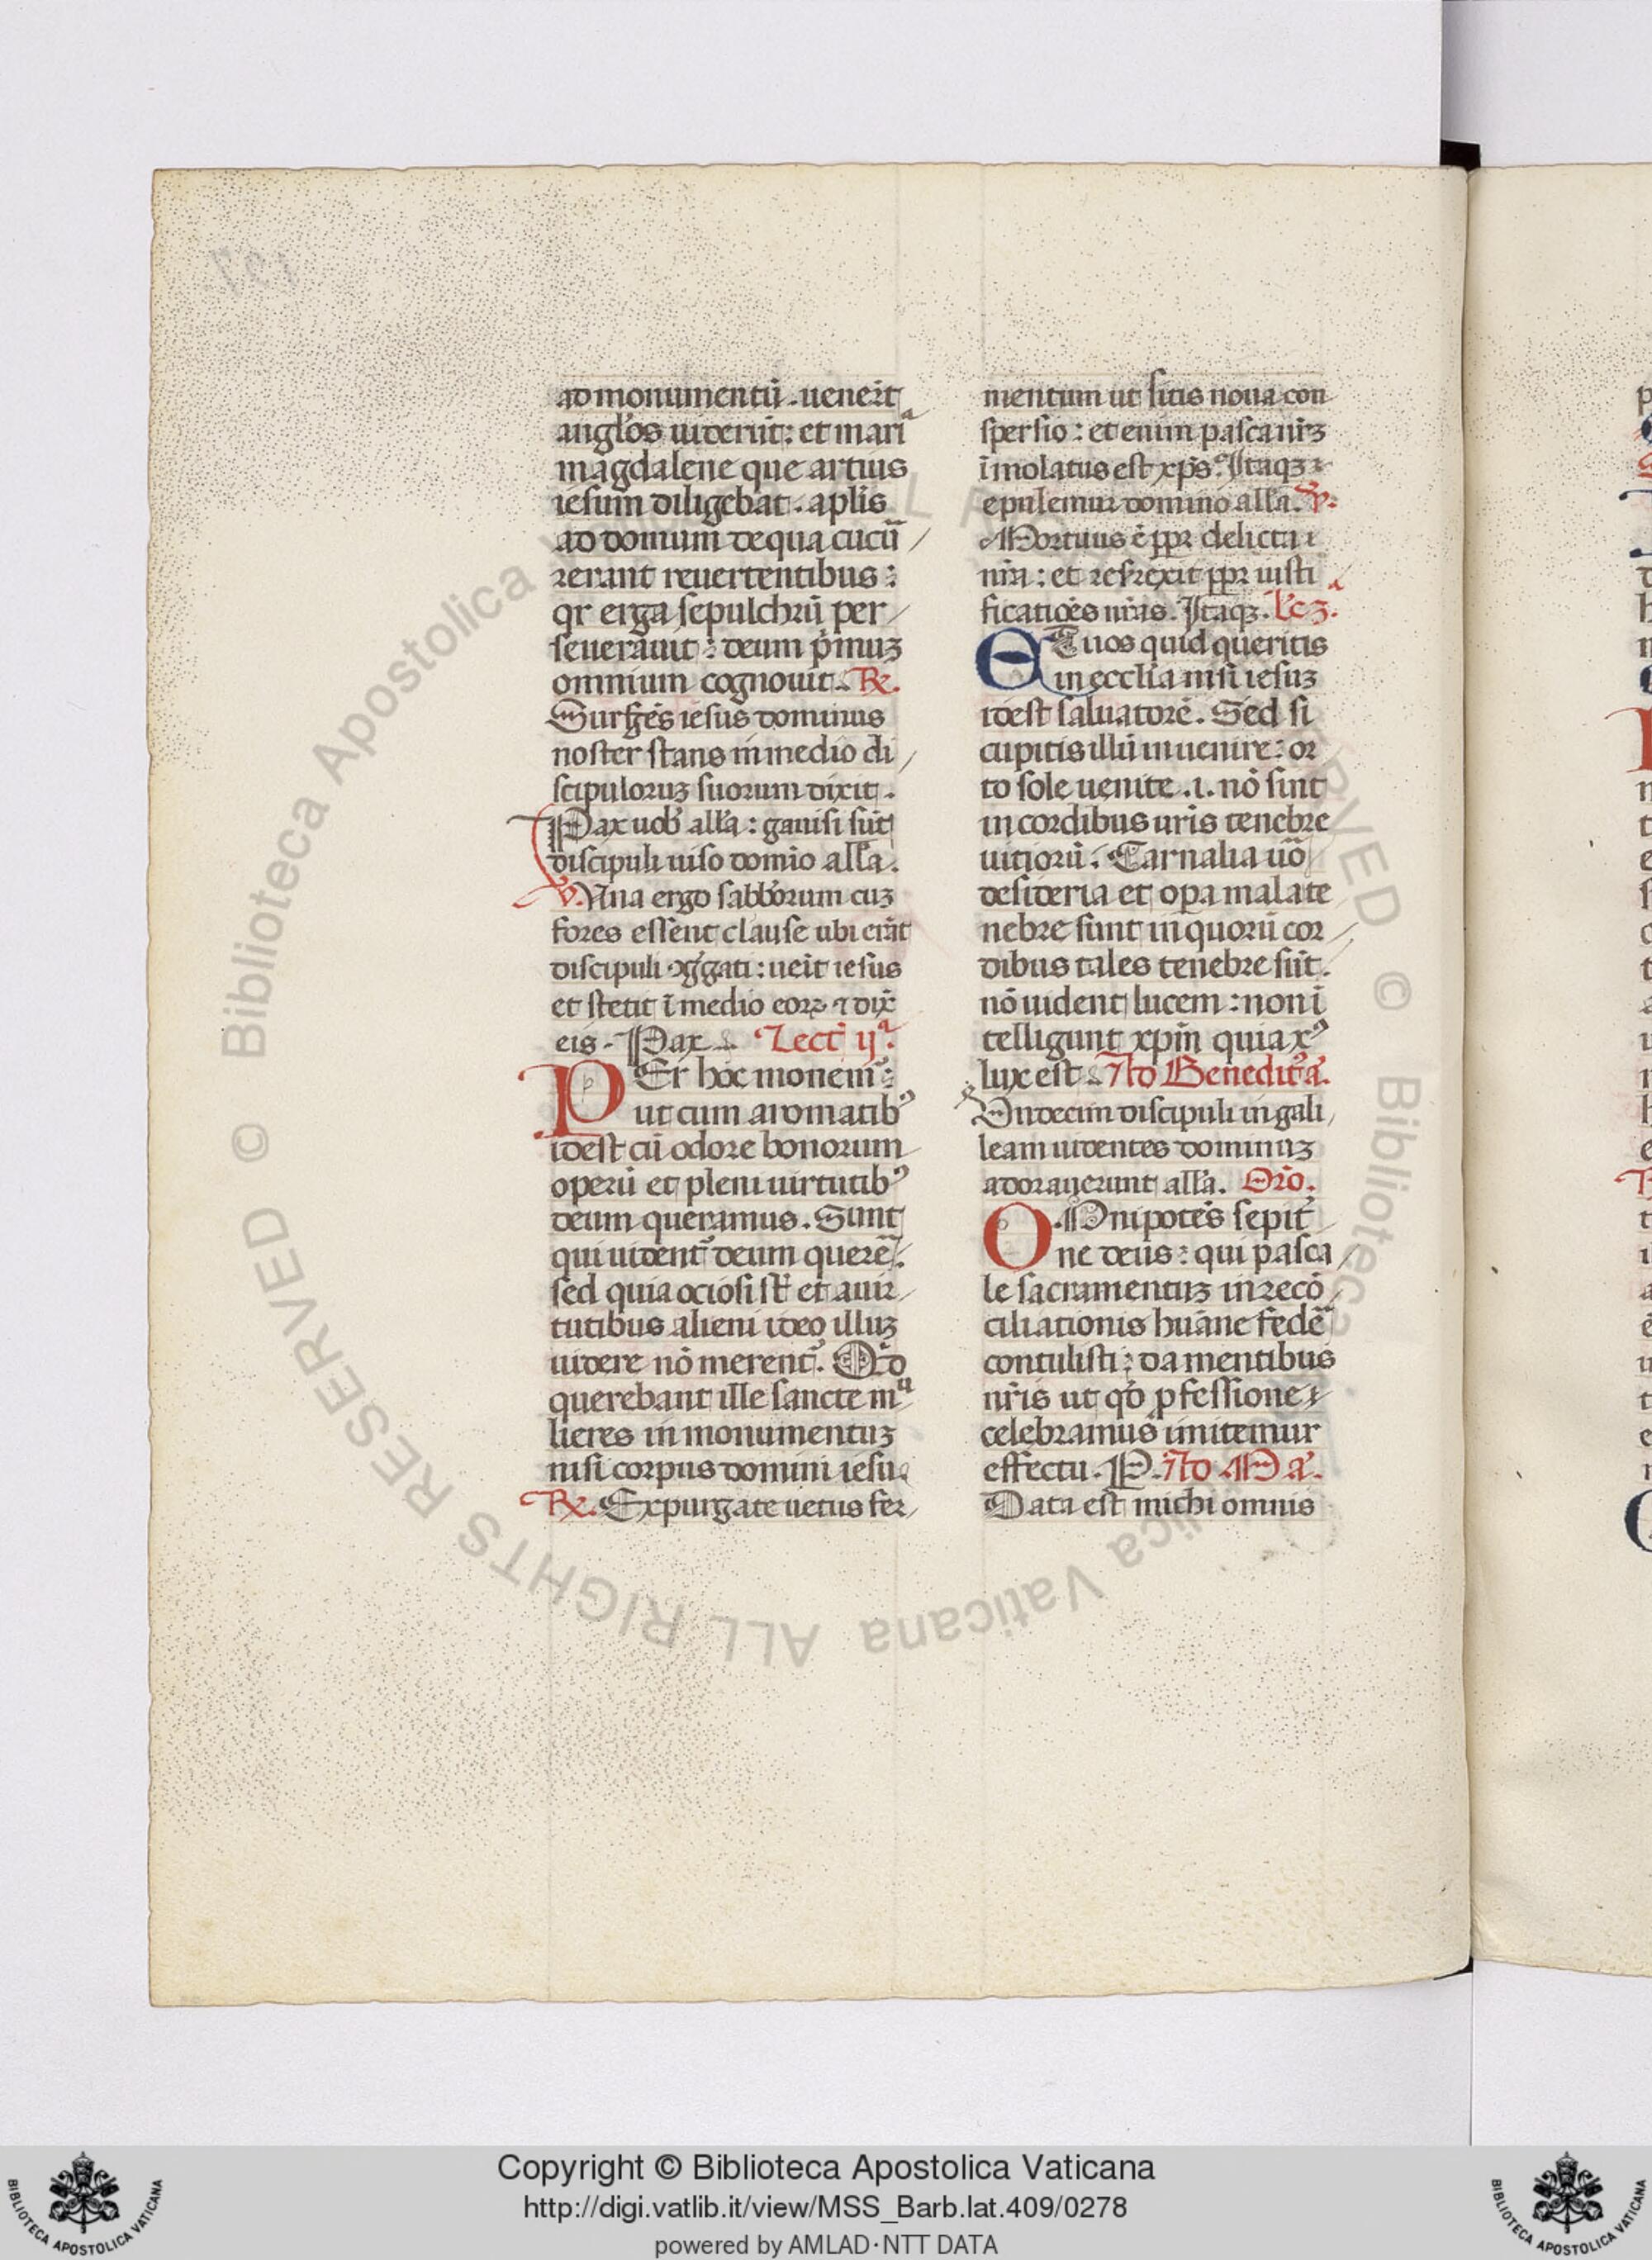 ad monumentū. uener̄t
angl'os uiderūt: et mariᵃ
magdalene que artius
iesum diligebat. apl'is
ad domum de qua cucū
rerant reuertentibus:
qr erga sepulchrū per
seuerauit: deum p̄muꝫ
omnium cognouit. ℟.
Surgēs iesus dominus
noster stans in medio di
scipuloruꝫ suorum dixit.
Pax uob' all'a: gauisi sūt
discipuli uiso domīo all'a.
℣. Una ergo sabb'orum cuꝫ
fores essent clause ubi erāt
discipuli ꝯg̃gati: ueīt iesus
et stetit ī medio eoꝝ ⁊ dix̄
eis. Pax. Lect' ijᵃ.
PEr hoc monem̃:
ut cum aromatibꝰ
idest cū odore bonorum
operū et pleni uirtutibꝰ
deum queramus. Sunt
qui uident̃ deum querē.
sed quia ociosi st̄ et a uir
tutibus alieni ideo illuꝫ
uidere nō merent̃. Qd̄
querebant ille sancte mᵘ
lieres in monumentuꝫ
nisi corpus domini iesu.
℟. Expurgate uetus fer
mentum ut sitis noua con
spersio: et enim pasca nr̄ꝫ
īmolatus est xp̄s. Itaqꝫ
epulemur domino all'a. ℣.
Mortuus ē ꝓpr delicta
nr̄a: et resrexit ꝓpr iusti
ficatiōes nr̄as. Itaqꝫ. Lc̄ꝫ.
ET uos quid queritis
in ecclia nisi iesuꝫ
idest saluatorē. Sed si
cupitis illū inuenire: or
to sole uenite. .i. nō sint
in cordibus uris tenebre
uitiorū. Carnalia uō
desideria et oꝑa mala te
nebre sunt in quorū cor
dibus tales tenebre sūt.
nō uident lucem: non ī
telligunt xpm̄ quia xꝰ
lux est. Ad Benedic̃. a.
Undecim discipuli in gali
leam uidentes dominuꝫ
adorauerunt all'a. Orō.
OMnipotēs sepit̃
ne deus: qui pasca
le sacramentuꝫ in recō
ciliationis huāne fedē
contulisti: da mentibus
nr̄is ut qd̄ ꝓfessione
celebramus imitemur
effectu. P. Ad M. a.
Data est michi omnis
© Biblioteca Apostolica Vaticana ALL RIGHTS RESERVED
Copyright © Biblioteca Apostolica Vaticana
http://digi.vatlib.it/view/MSS_Barb.lat.409/0278
powered by AMLAD·NTT DATA
BIBLIOTECA APOSTOLICA VATICANA
BIBLIOTECA APOSTOLICA VATICANA